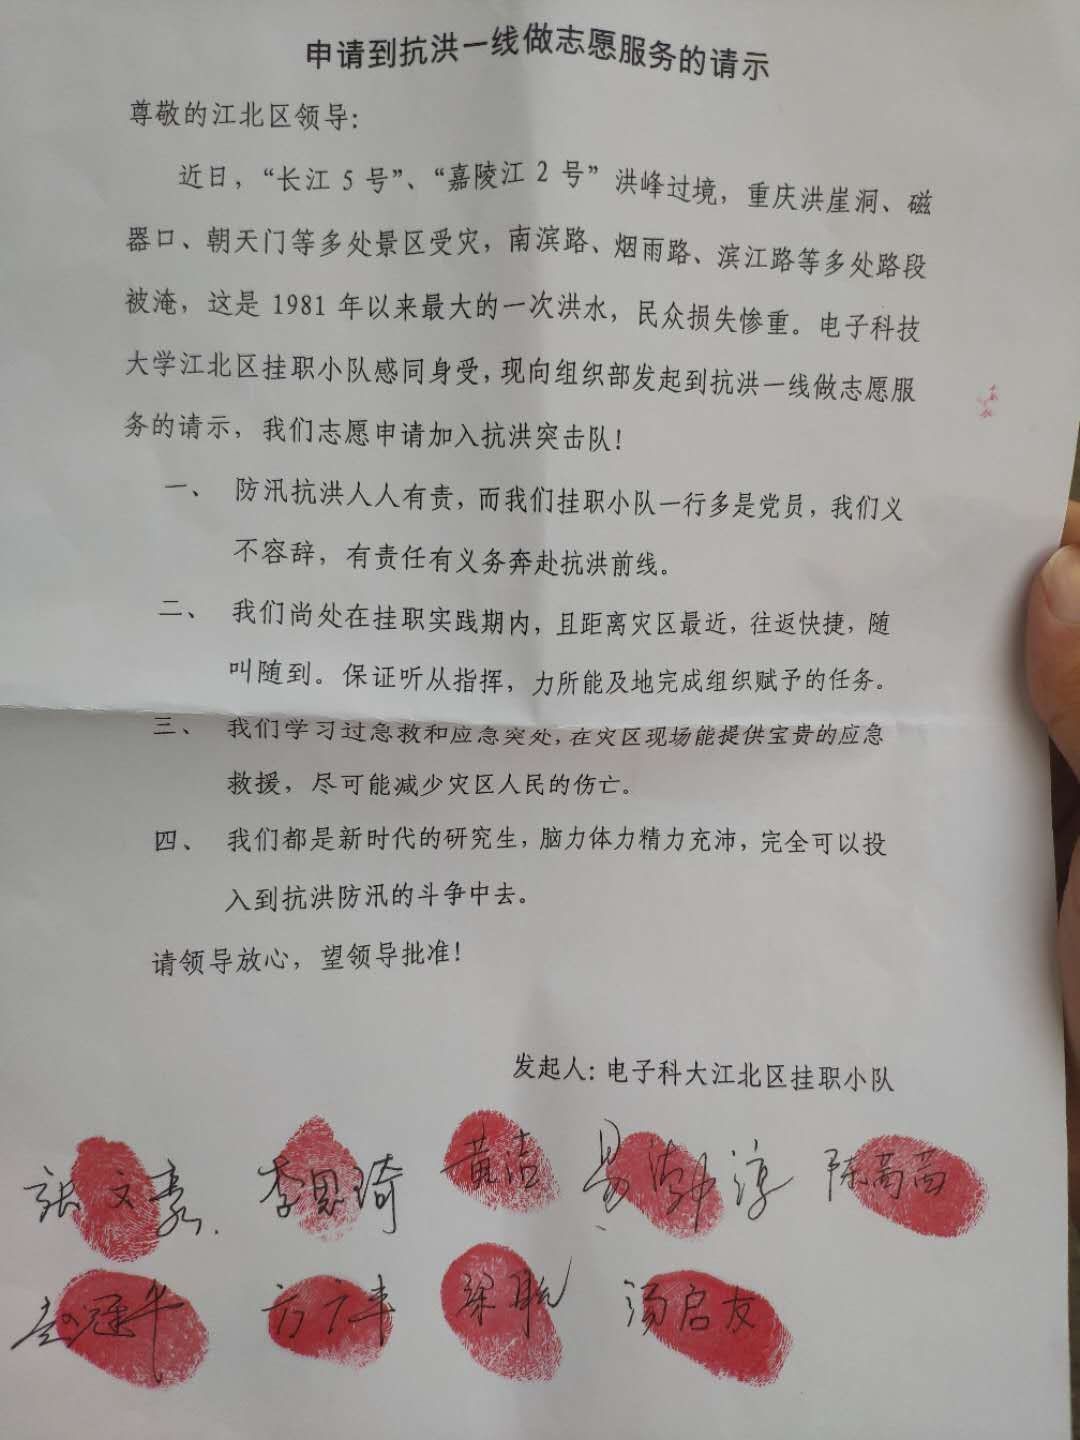 申请到抗洪一线做志愿服务的请示
尊敬的江北区领导：
近日，“长江 5 号”、“嘉陵江 2 号”洪峰过境，重庆洪崖洞、磁
器口、朝天门等多处景区受灾，南滨路、烟雨路、滨江路等多处路段
被淹，这是 1981 年以来最大的一次洪水，民众损失惨重。电子科技
大学江北区挂职小队感同身受，现向组织部发起到抗洪一线做志愿服
务的请示，我们志愿申请加入抗洪突击队！
一、 防汛抗洪人人有责，而我们挂职小队一行多是党员，我们义
不容辞，有责任有义务奔赴抗洪前线。
二、 我们尚处在挂职实践期内，且距离灾区最近，往返快捷，随
叫随到。保证听从指挥，力所能及地完成组织赋予的任务。
三、 我们学习过急救和应急突处，在灾区现场能提供宝贵的应急
救援，尽可能减少灾区人民的伤亡。
四、 我们都是新时代的研究生，脑力体力精力充沛，完全可以投
入到抗洪防汛的斗争中去。
请领导放心，望领导批准！
发起人：电子科大江北区挂职小队
李思琦 黄洁
赵冠华 方广丰 梁聪 汤启友